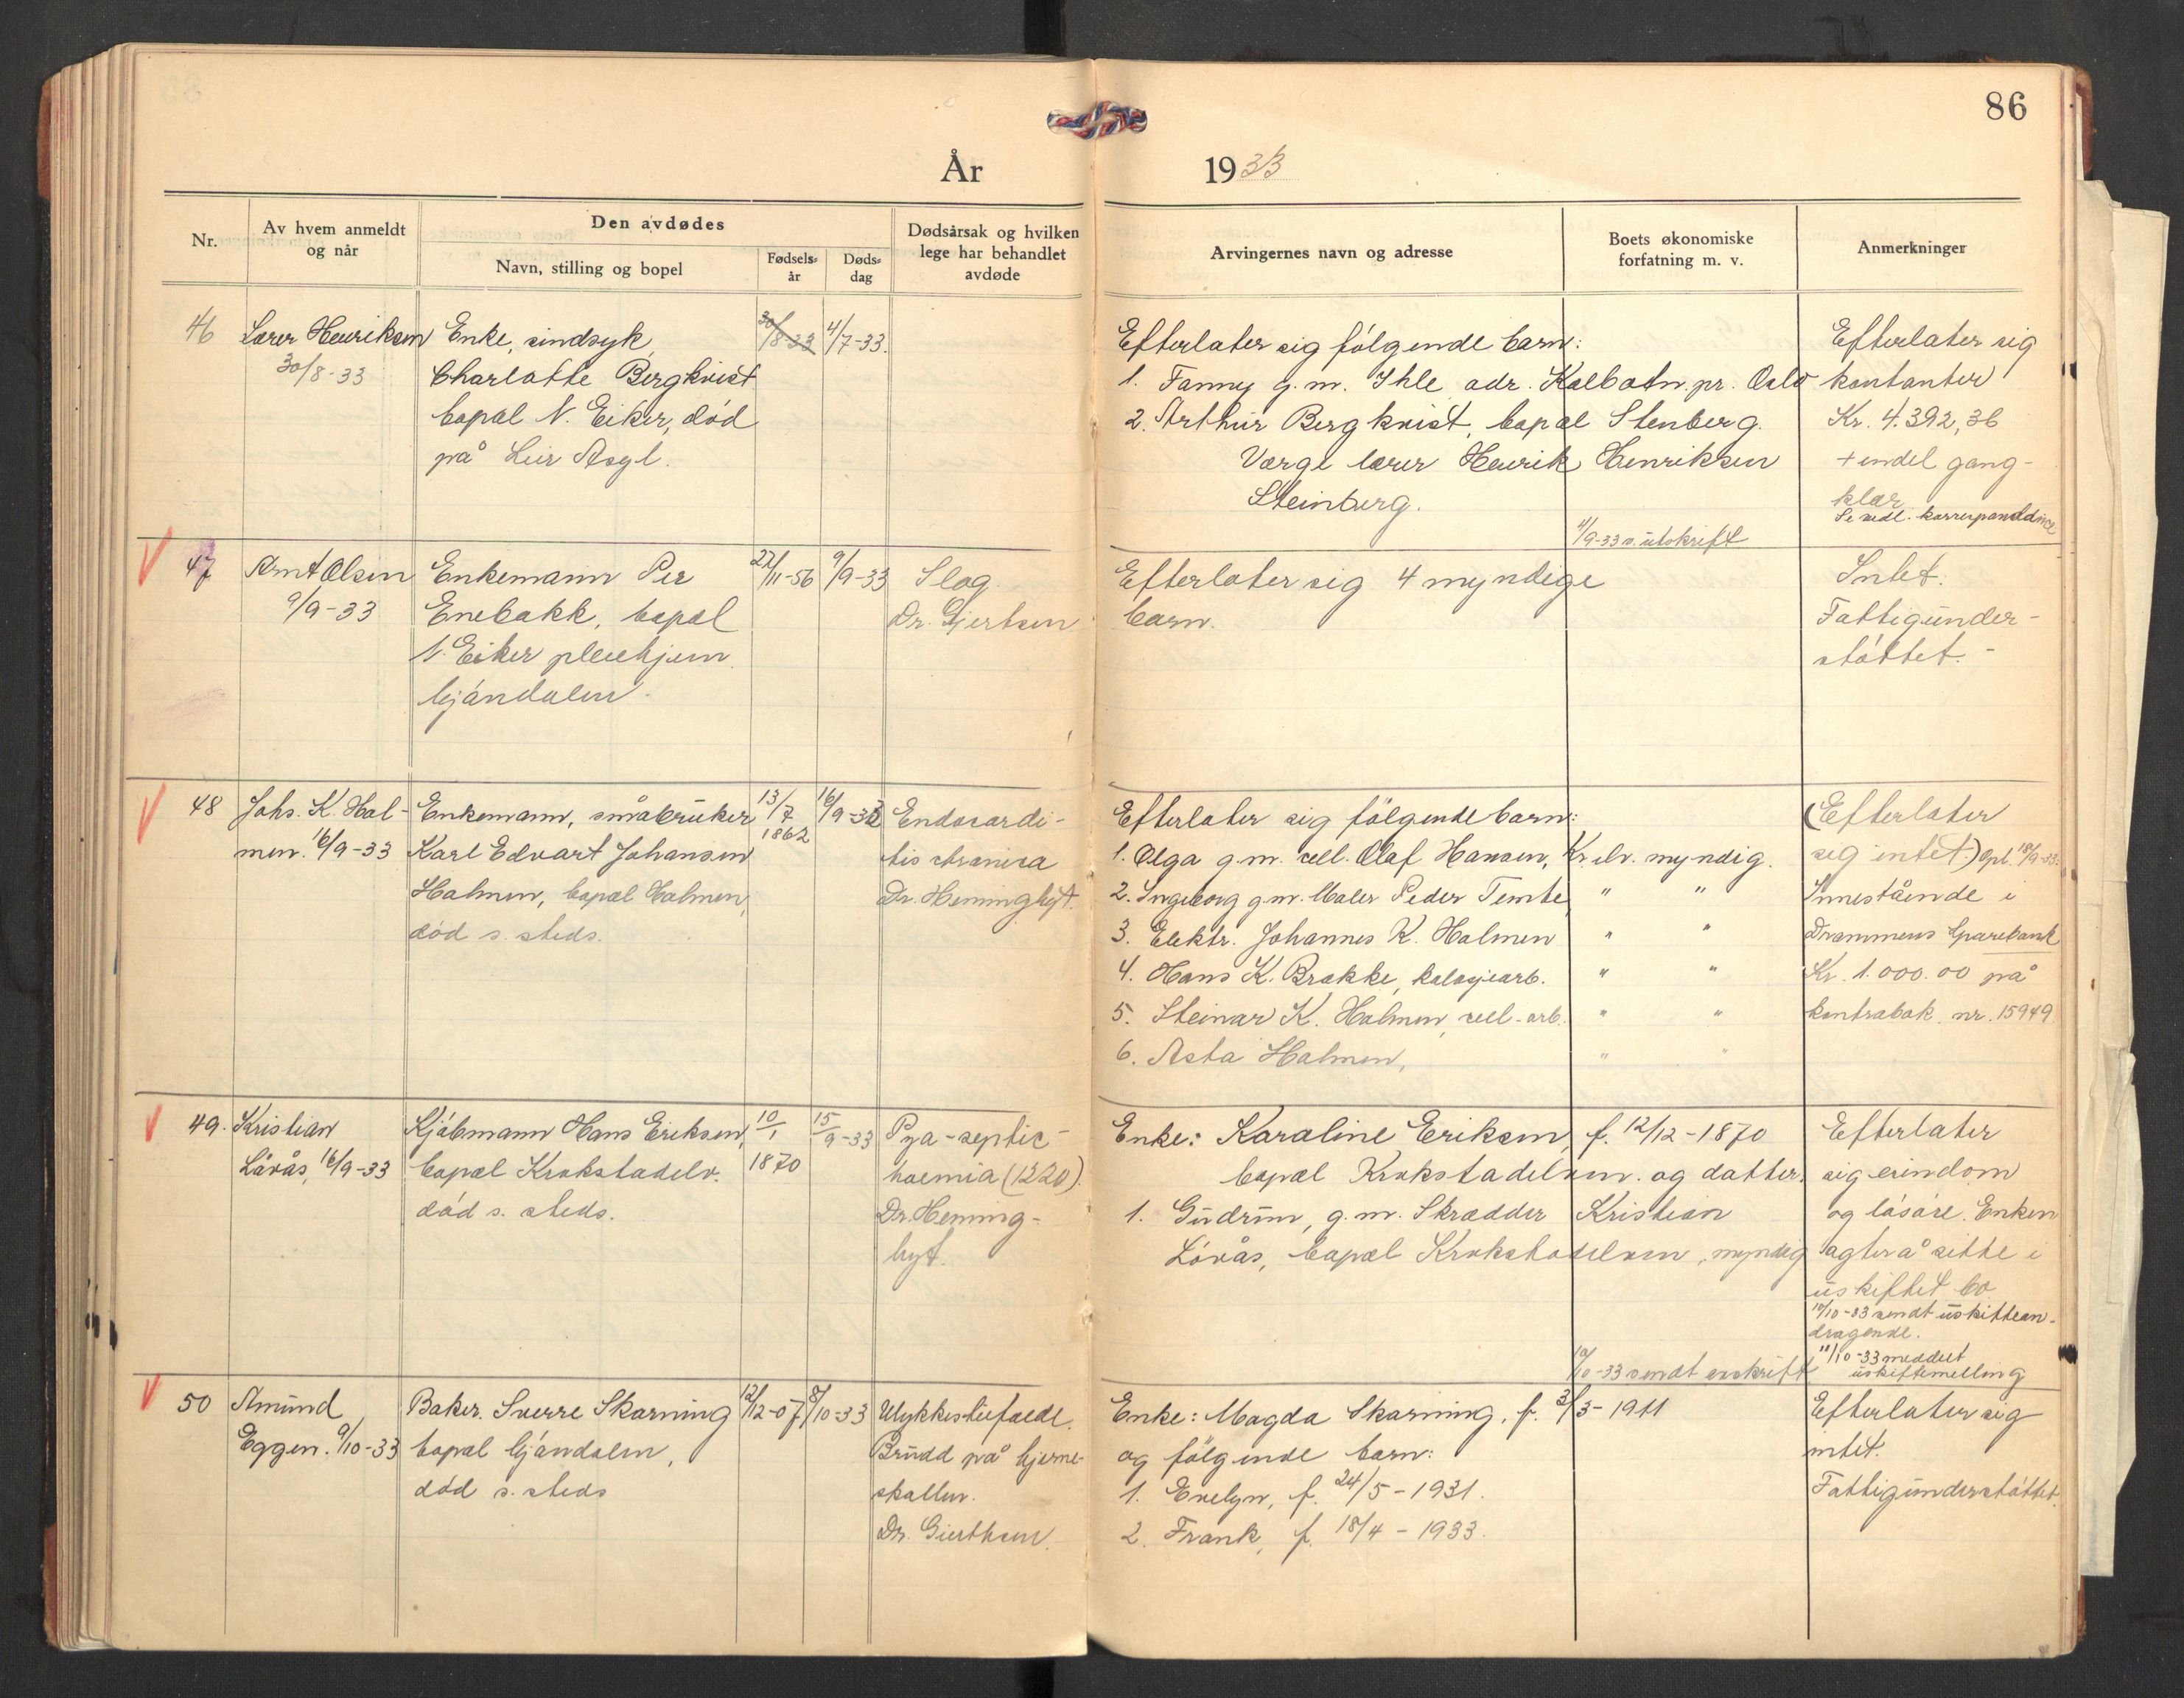 86
År 1933
Nr.
Av hvem anmeldt
og når
Den avdødes
Navn, stilling og bopel
Fødsels-
år
Døds-
dag
Dødsårsak og hvilken
lege har behandlet
avdøde
Arvingernes navn og adresse
Boets økonomiske
forfatning m. v.
Anmerkninger
46
Lærer Henriksen
30/8-33
Enke, sindsyk
Charlotte Bergkvist
bopæl N. Eiker, død
på Lier Asyl.
30/8-33
4/7-33.
Efterlater sig følgende barn:
1. Fanny g.m. Ihle adr. Kolbotn pr. Oslo
2. Arthur Bergkvist, bopæl Stenberg.
Værge lærer Henrik Henriksen
Steinberg.
4/9-33 s. utskrift
Efterlater sig
kontanter
Kr. 4.392,36
+ endel gang-
klær
Se vedl. korresponddince
47
Arnt Olsen
9/9-33
Enkemann Per
Enebakk, bopæl
N. Eiker pleiehjem
Mjøndalen.
22/11-56
9/9-33
Slag
Dr. Gjertsen
Efterlater sig 4 myndige
barn.
Intet.
Fattigunder-
støttet.-
48
Johs. K. Hol-
men. 16/9-33
Enkemann, småbruker
Karl Edvart Johansen
Holmen, bopæl Holmen,
død s. steds.
13/7
1862
16/9-33
Endocardi-
tis chronica
Dr. Heminghyt.
Efterlater sig følgende barn:
1. Olga g.m. cell. Olaf Hansen, Kr.elv. myndig.
2. Ingeborg g.m. Maler Peder Temte, " "
3. Elektr. Johannes K. Holmen " "
4. Hans K. Brakke, kaloşjearb. " "
5. Steinar K. Holmen, cell-arb. " "
6. Asta Holmen, " "
(Efterlater
sig intet.) Opl. 18/9-33.
Innestående i
Drammens Sparebank
Kr. 1.000.00 på
kontrabok nr. 15949
49.
Kristian
Løvås, 16/9-33
Kjøbmann Hans Eriksen,
bopæl Krokstadelv.
død s. steds.
10/1
1870
15/9-33
Pya-septic-
hoemia (1220).
Dr. Heming-
hyt.
Enke: Karoline Eriksen, f. 12/12-1870
bopæl Krokstadelven. og datter.
1. Gudrun, g.m. Skrædder Kristian
Løvås, bopæl Krokstadelven, myndig
10/10-33 sendt avskrift
Efterlater
sig eiendom
og løsøre. Enken
agter å sitte i
uskiftet bo
10/10-33 sendt uskiftean-
dragende.
11/10-33 meddelt
uskiftemelling
50
Amund
Eggen. 9/10-33
Baker. Sverre Skarning
bopæl Mjøndalen,
død s. steds
12/12-07
8/10-33
Ulykkestilfælde.
Brudd på hjerne-
skallen.
Dr. Gierthsen.
Enke: Magda Skarning, f. 3/3-1911
og følgende barn:
1. Evelyn, f. 24/5-1931.
2. Frank, f. 18/4-1933.
Efterlater sig
intet.
Fattigunderstøttet.